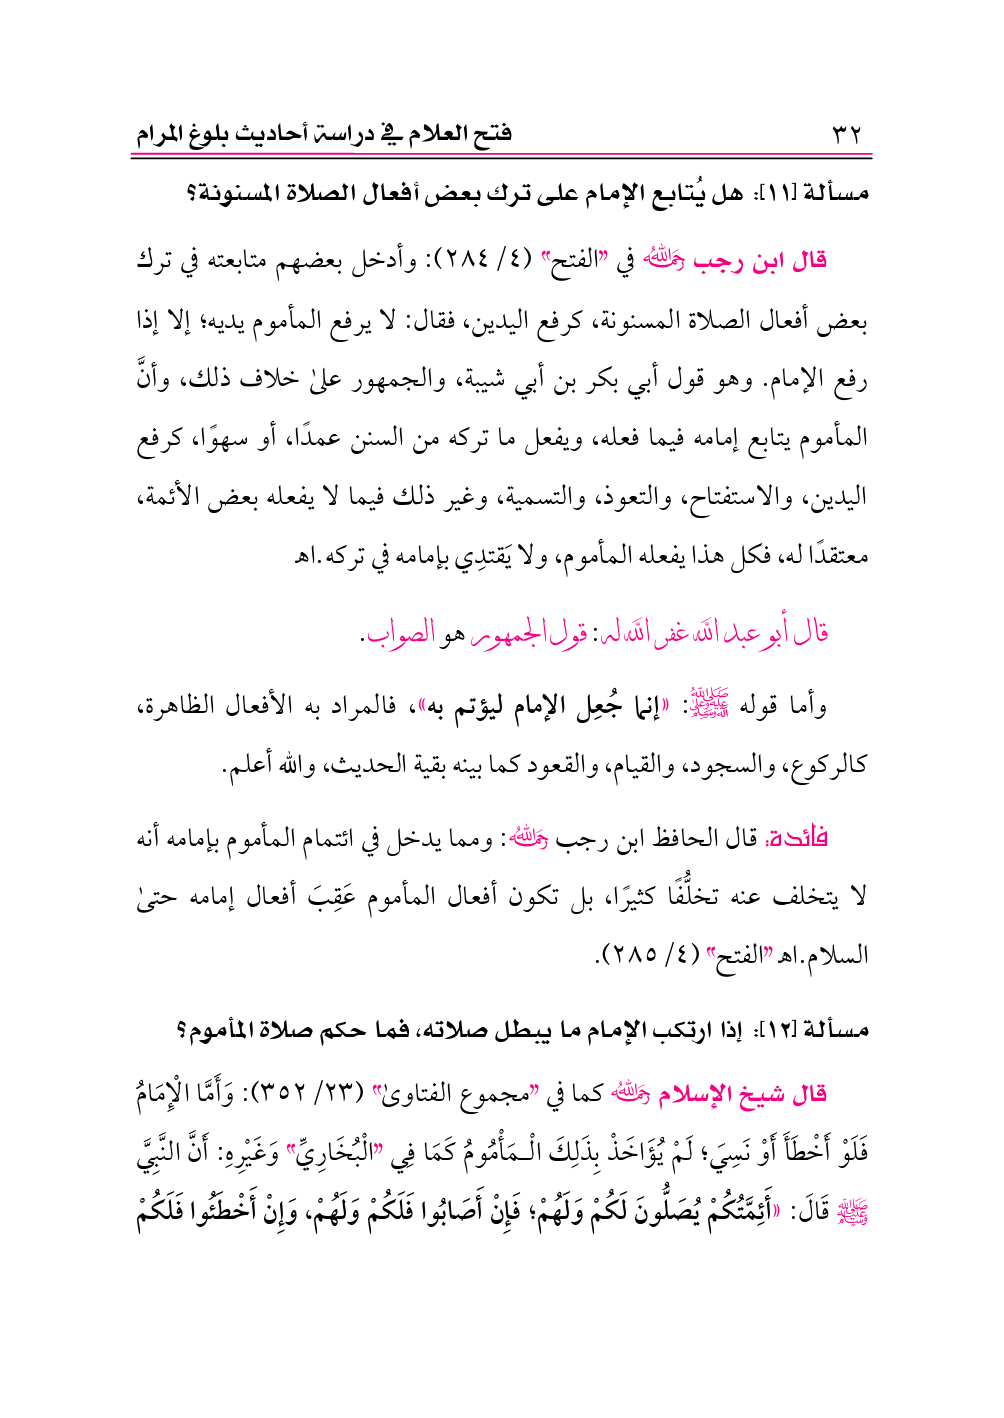 ٣٢ فتح العلام في دراسة أحاديث بلوغ المرام
مسألة [١١]: هل يُتابع الإمام على ترك بعض أفعال الصلاة المسنونة؟
قال ابن رجب رحمه الله في "الفتح" (٤/ ٢٨٤): وأدخل بعضهم متابعته في ترك
بعض أفعال الصلاة المسنونة، كرفع اليدين، فقال: لا يرفع المأموم يديه؛ إلا إذا
رفع الإمام. وهو قول أبي بكر بن أبي شيبة، والجمهور علىٰ خلاف ذلك، وأنَّ
المأموم يتابع إمامه فيما فعله، ويفعل ما تركه من السنن عمدًا، أو سهوًا، كرفع
اليدين، والاستفتاح، والتعوذ، والتسمية، وغير ذلك فيما لا يفعله بعض الأئمة،
معتقدًا له، فكل هذا يفعله المأموم، ولا يَقتدِي بإمامه في تركه.اهـ
قال أبو عبد الله غفر الله له: قول الجمهور هو الصواب.
وأما قوله ﷺ: «إنما جُعِل الإمام ليؤتم به»، فالمراد به الأفعال الظاهرة،
كالركوع، والسجود، والقيام، والقعود كما بينه بقية الحديث، والله أعلم.
فائدة: قال الحافظ ابن رجب رحمه الله: ومما يدخل في ائتمام المأموم بإمامه أنه
لا يتخلف عنه تخلُّفًا كثيرًا، بل تكون أفعال المأموم عَقِبَ أفعال إمامه حتىٰ
السلام.اهـ "الفتح" (٤/ ٢٨٥).
مسألة [١٢]: إذا ارتكب الإمام ما يبطل صلاته، فما حكم صلاة المأموم؟
قال شيخ الإسلام رحمه الله كما في "مجموع الفتاوىٰ" (٢٣/ ٣٥٢): وَأَمَّا الْإِمَامُ
فَلَوْ أَخْطَأَ أَوْ نَسِيَ؛ لَمْ يُؤَاخَذْ بِذَلِكَ الْـمَأْمُومُ كَمَا فِي "الْبُخَارِيِّ" وَغَيْرِهِ: أَنَّ النَّبِيَّ
ﷺ قَالَ: «أَئِمَّتُكُمْ يُصَلُّونَ لَكُمْ وَلَهُمْ؛ فَإِنْ أَصَابُوا فَلَكُمْ وَلَهُمْ، وَإِنْ أَخْطَئُوا فَلَكُمْ